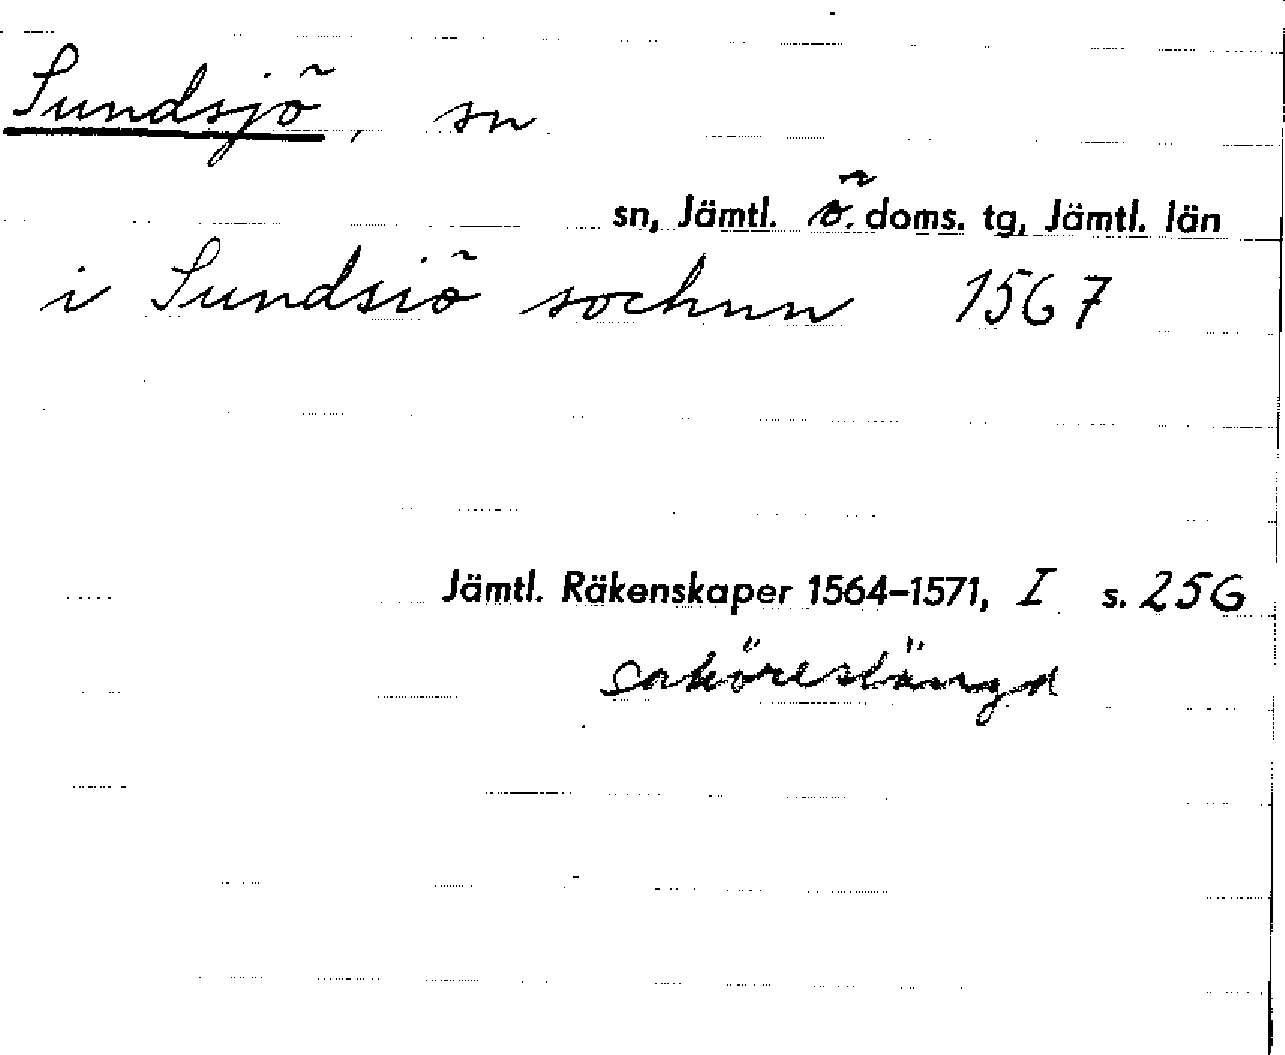 Sundsjö, sn
sn, Jämtl. ö. doms. tg, Jämtl. län
i Sundsiö sochnn 1567
Jämtl. Räkenskaper 1564–1571, I s. 256
saköreslängd